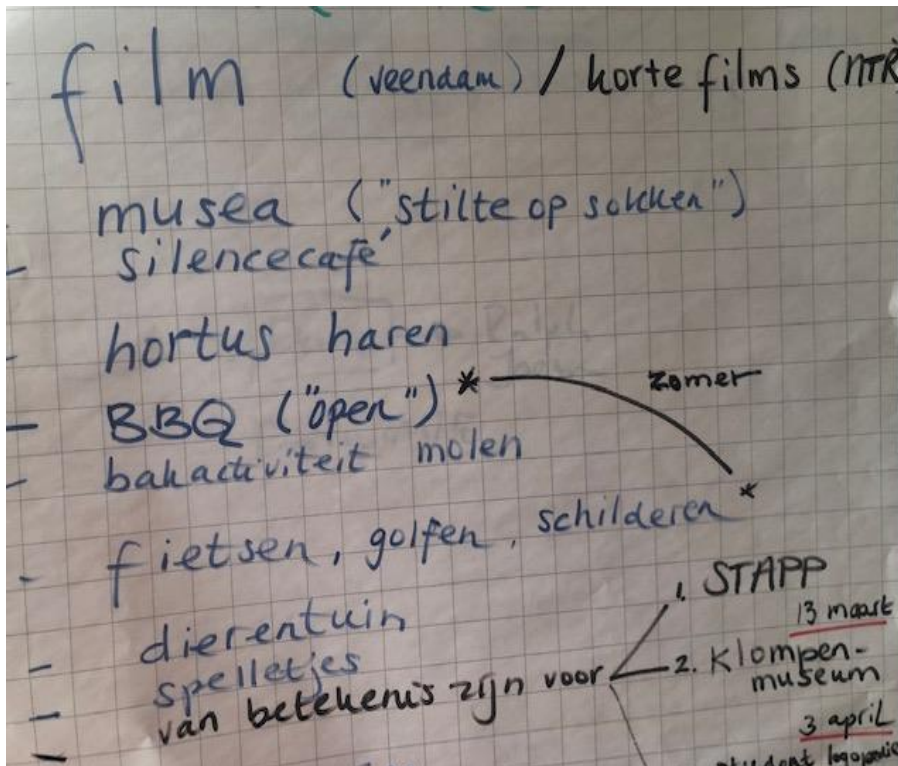 - film (veendam) / korte films (NTR
musea ("stilte op sokken")
- silencecafé
- hortus haren
- BBQ ("open") *
zomer
- bakactiviteit molen
- fietsen, golfen, schilderen *
- dierentuin
- spelletjes
- van betekenis zijn voor
1. STAPP
13 maart
2. Klompen-
museum
3 april
student logopedie